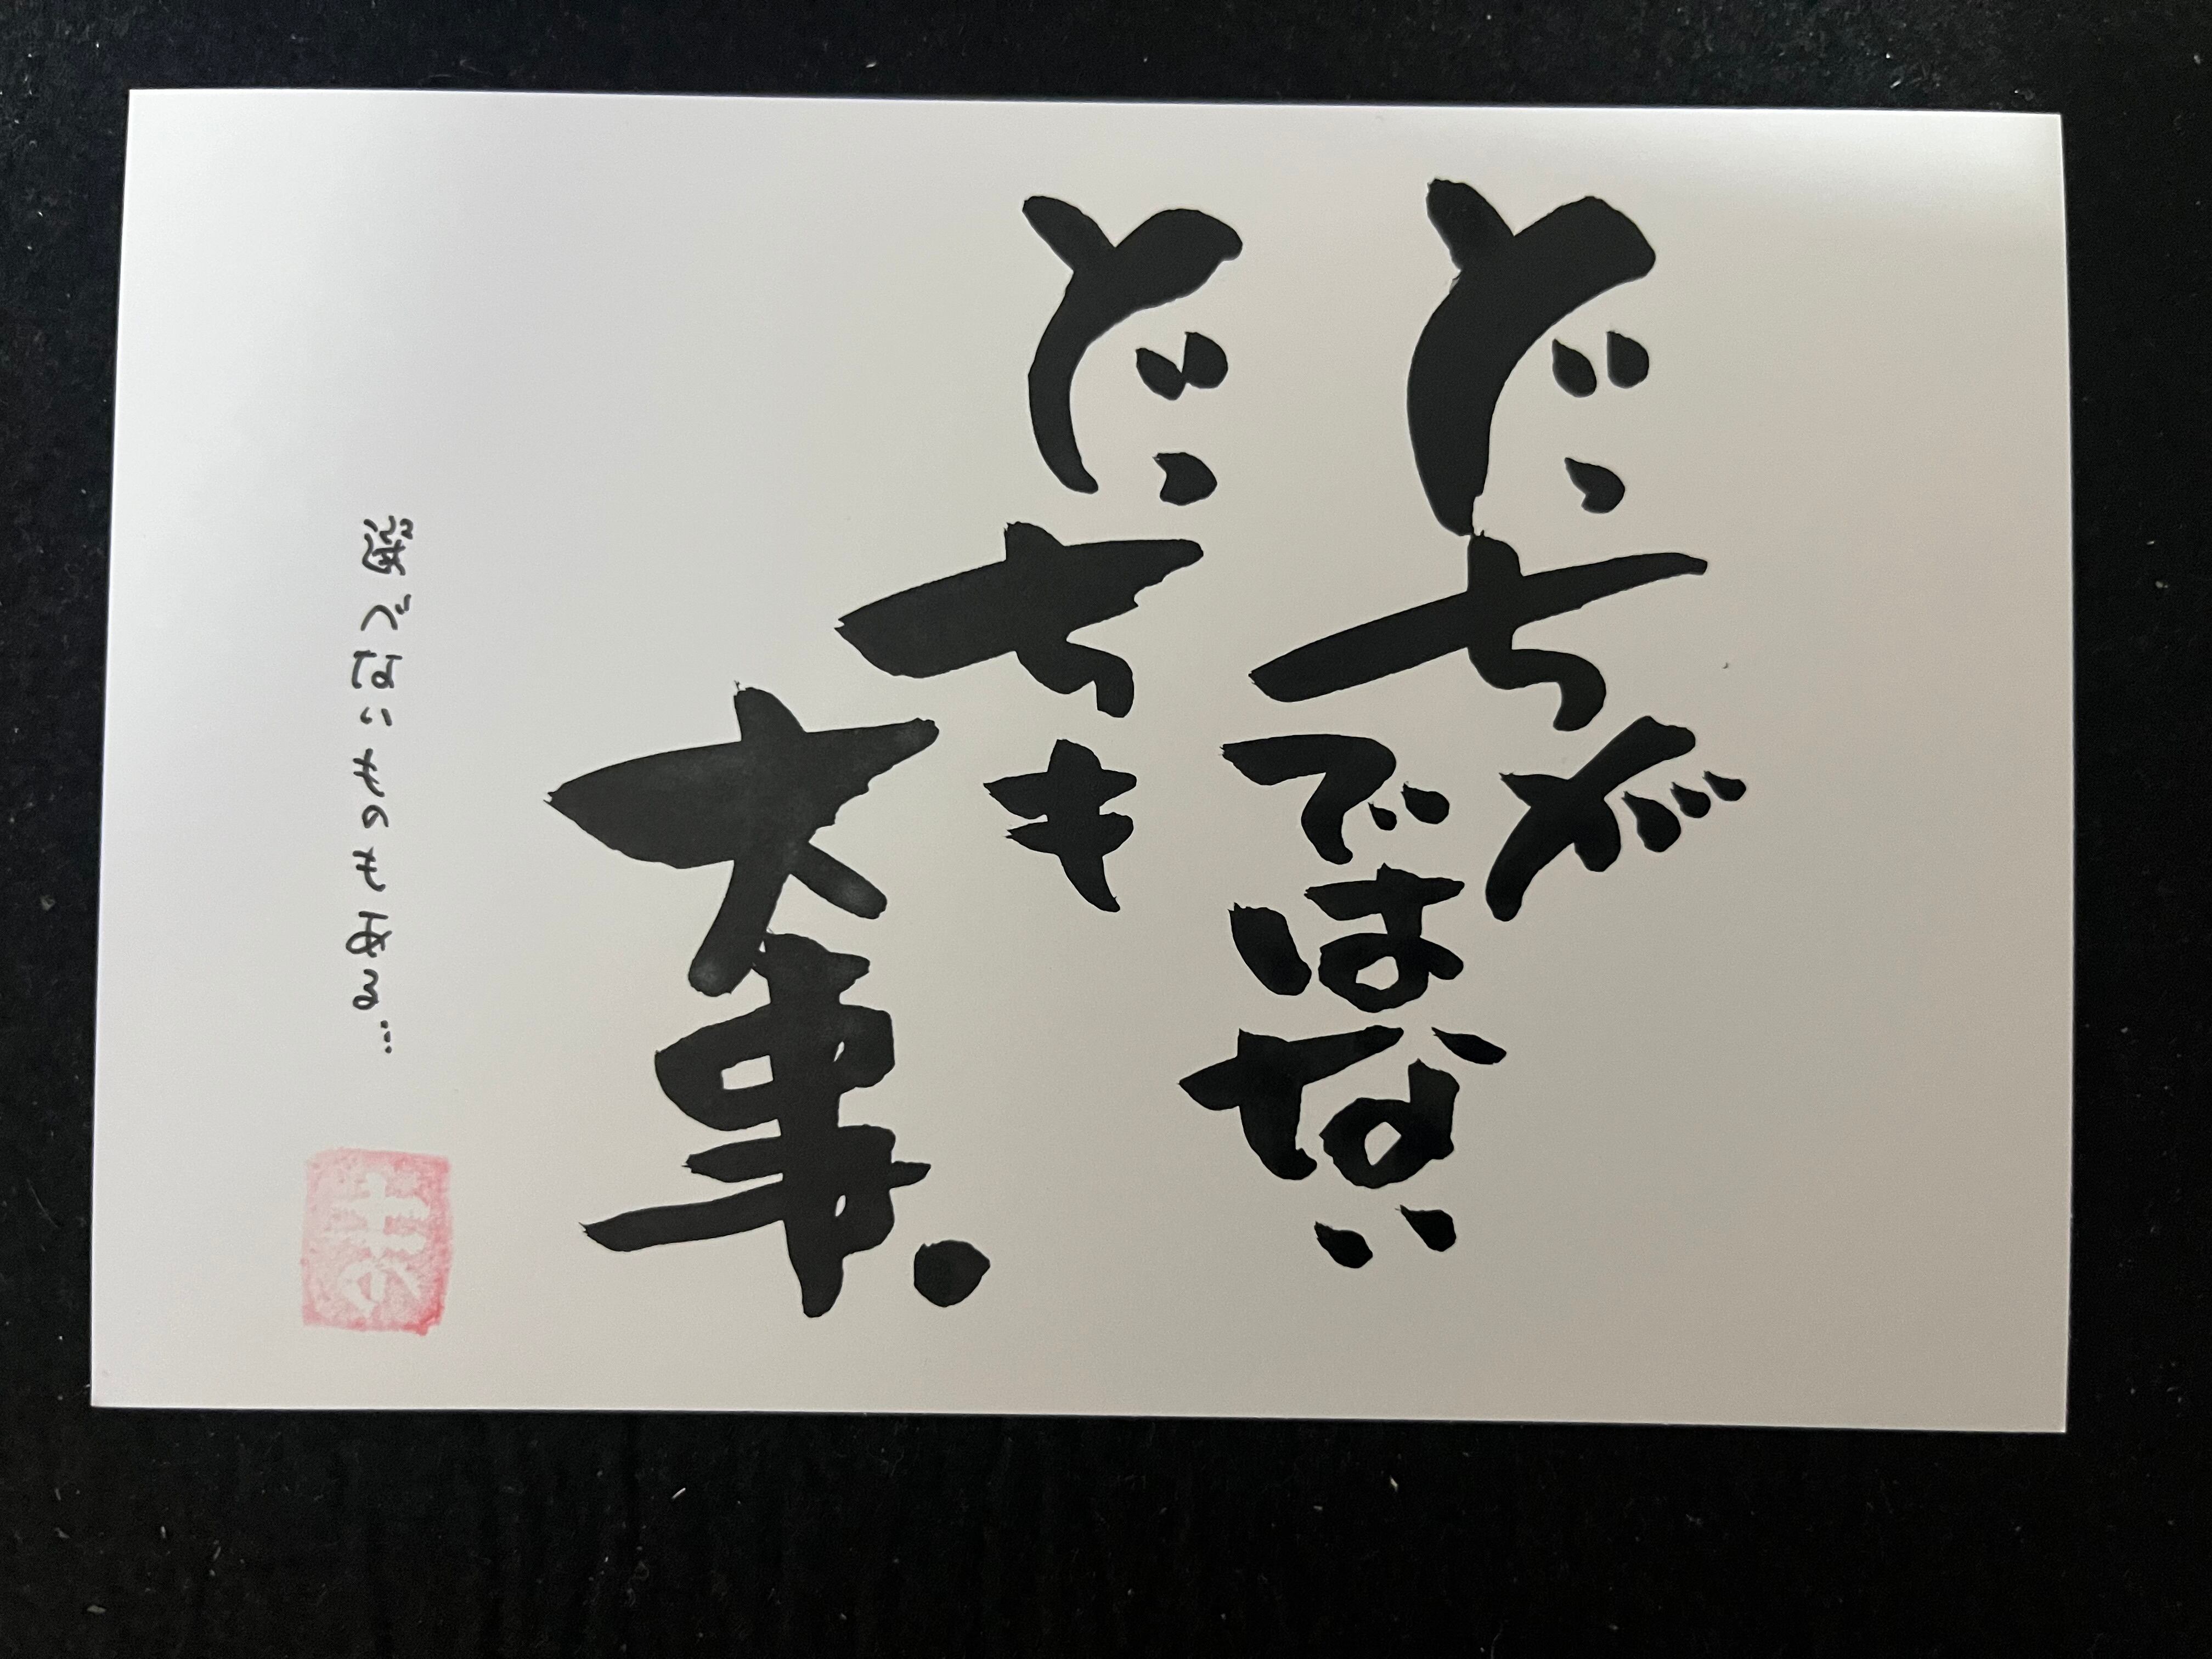 どっちが
ではない
どっちも
大事。
選べないものもある…